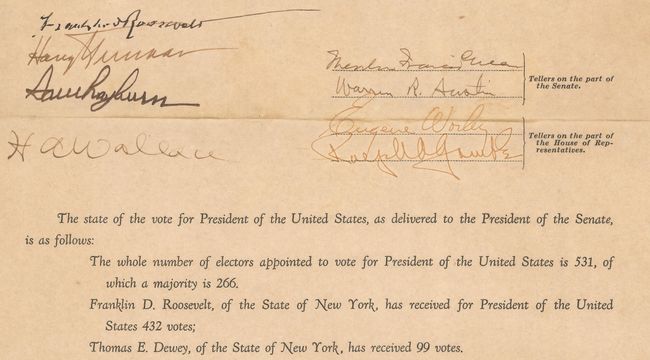 Franklin D Roosevelt
Harry Truman
Sam Rayburn
H A Wallace
Theodore Francis Green
Warren R. Austin
Eugene Worley
Ralph A Gamble
Tellers on the part of
the Senate.
Tellers on the part of
the House of Rep-
resentatives.
The state of the vote for President of the United States, as delivered to the President of the Senate,
is as follows:
The whole number of electors appointed to vote for President of the United States is 531, of
which a majority is 266.
Franklin D. Roosevelt, of the State of New York, has received for President of the United
States 432 votes;
Thomas E. Dewey, of the State of New York, has received 99 votes.